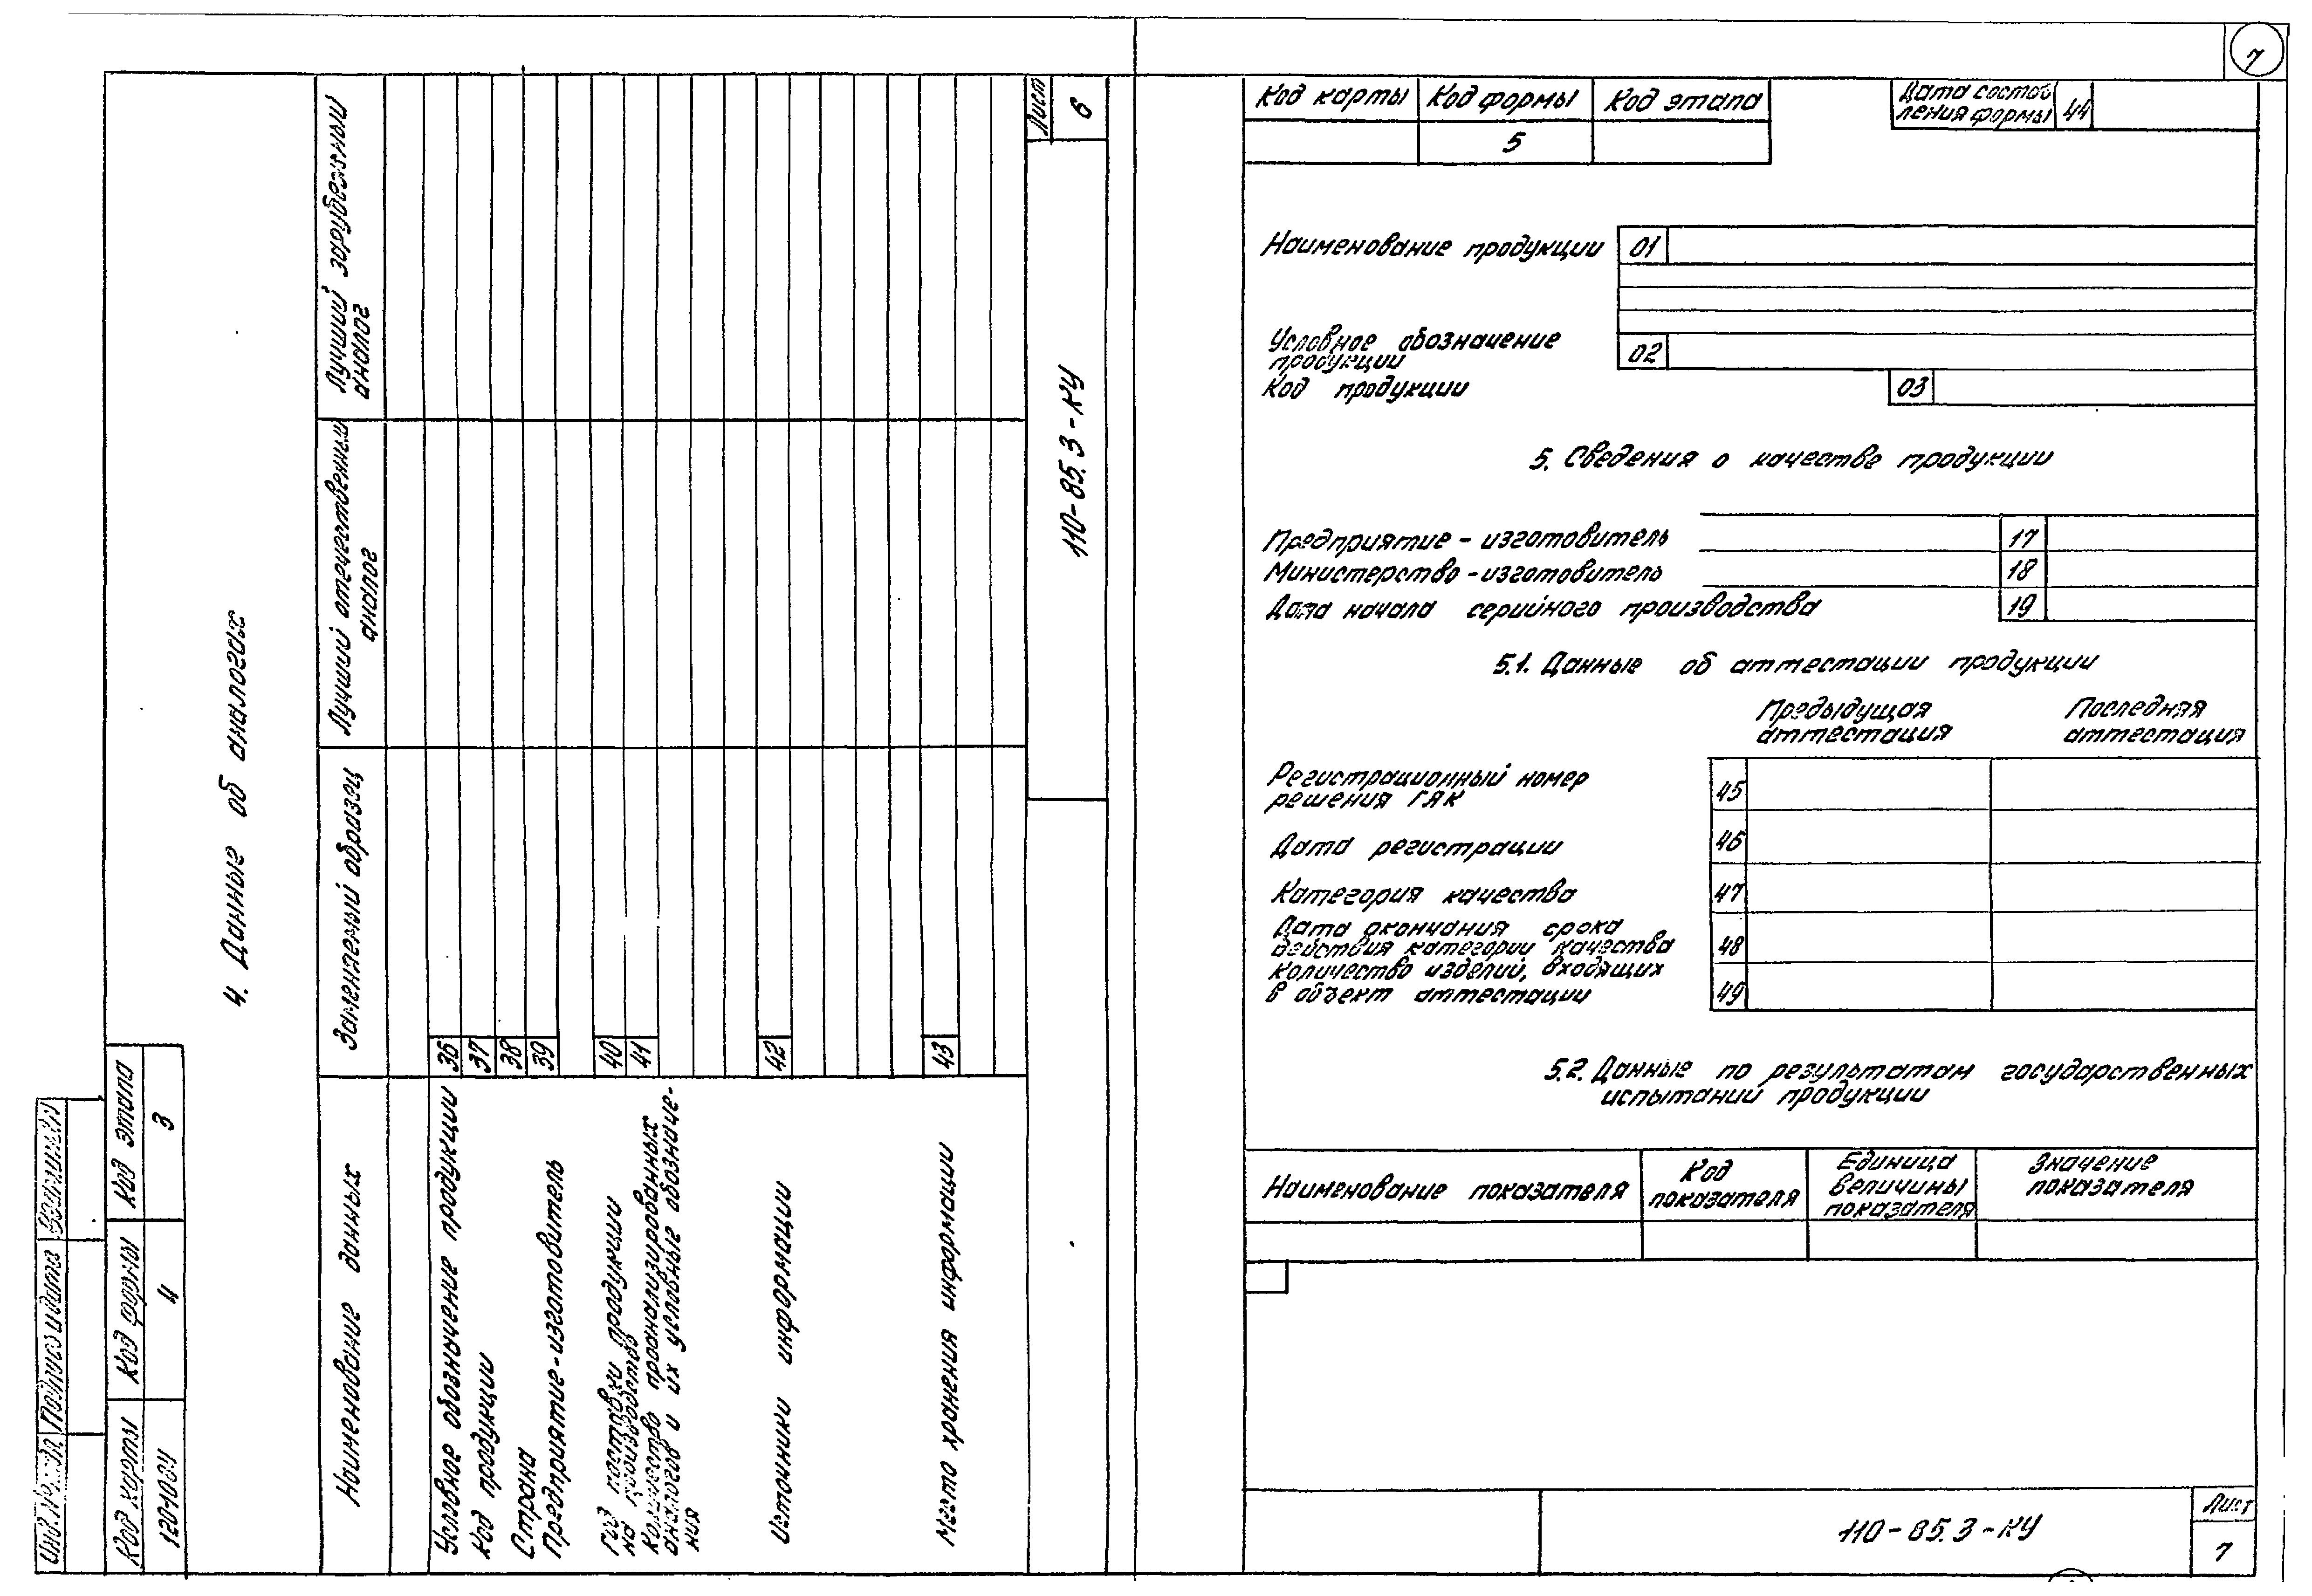 Инв.№ подл.
Подпись и дата
Взам.инв.№
Код карты
Код формы
Код этапа
120-1084
4
3
4. Данные об аналогах
Наименование данных
Заменяемый образец
Лучший отечественный
аналог
Лучший зарубежный
аналог
Условное обозначение продукции
36
Код продукции
37
Страна
38
Предприятие-изготовитель
39
Год постановки продукции
на производство
40
Количество проанализированных
41
аналогов и их условные обозначе-
ния
Источники информации
42
Место хранения информации
43
110-85.3-КУ
Лист
6
7
Код карты
Код формы
Код этапа
5
Дата состав
ления формы
44
Наименование продукции
01
Условное обозначение
продукции
02
Код продукции
03
5. Сведения о качестве продукции
Предприятие - изготовитель
17
Министерство - изготовитель
18
Дата начала серийного производства
19
5.1. Данные об аттестации продукции
Предыдущая
аттестация
Последняя
аттестация
Регистрационный номер
решения ГАК
45
Дата регистрации
46
Категория качества
47
Дата окончания срока
действия категории качества
48
Количество изделий, входящих
в объект аттестации
49
5.2. Данные по результатам государственных
испытаний продукции
Наименование показателя
Код
показателя
Единица
величины
показателя
Значение
показателя
110-85.3-КУ
Лист
7